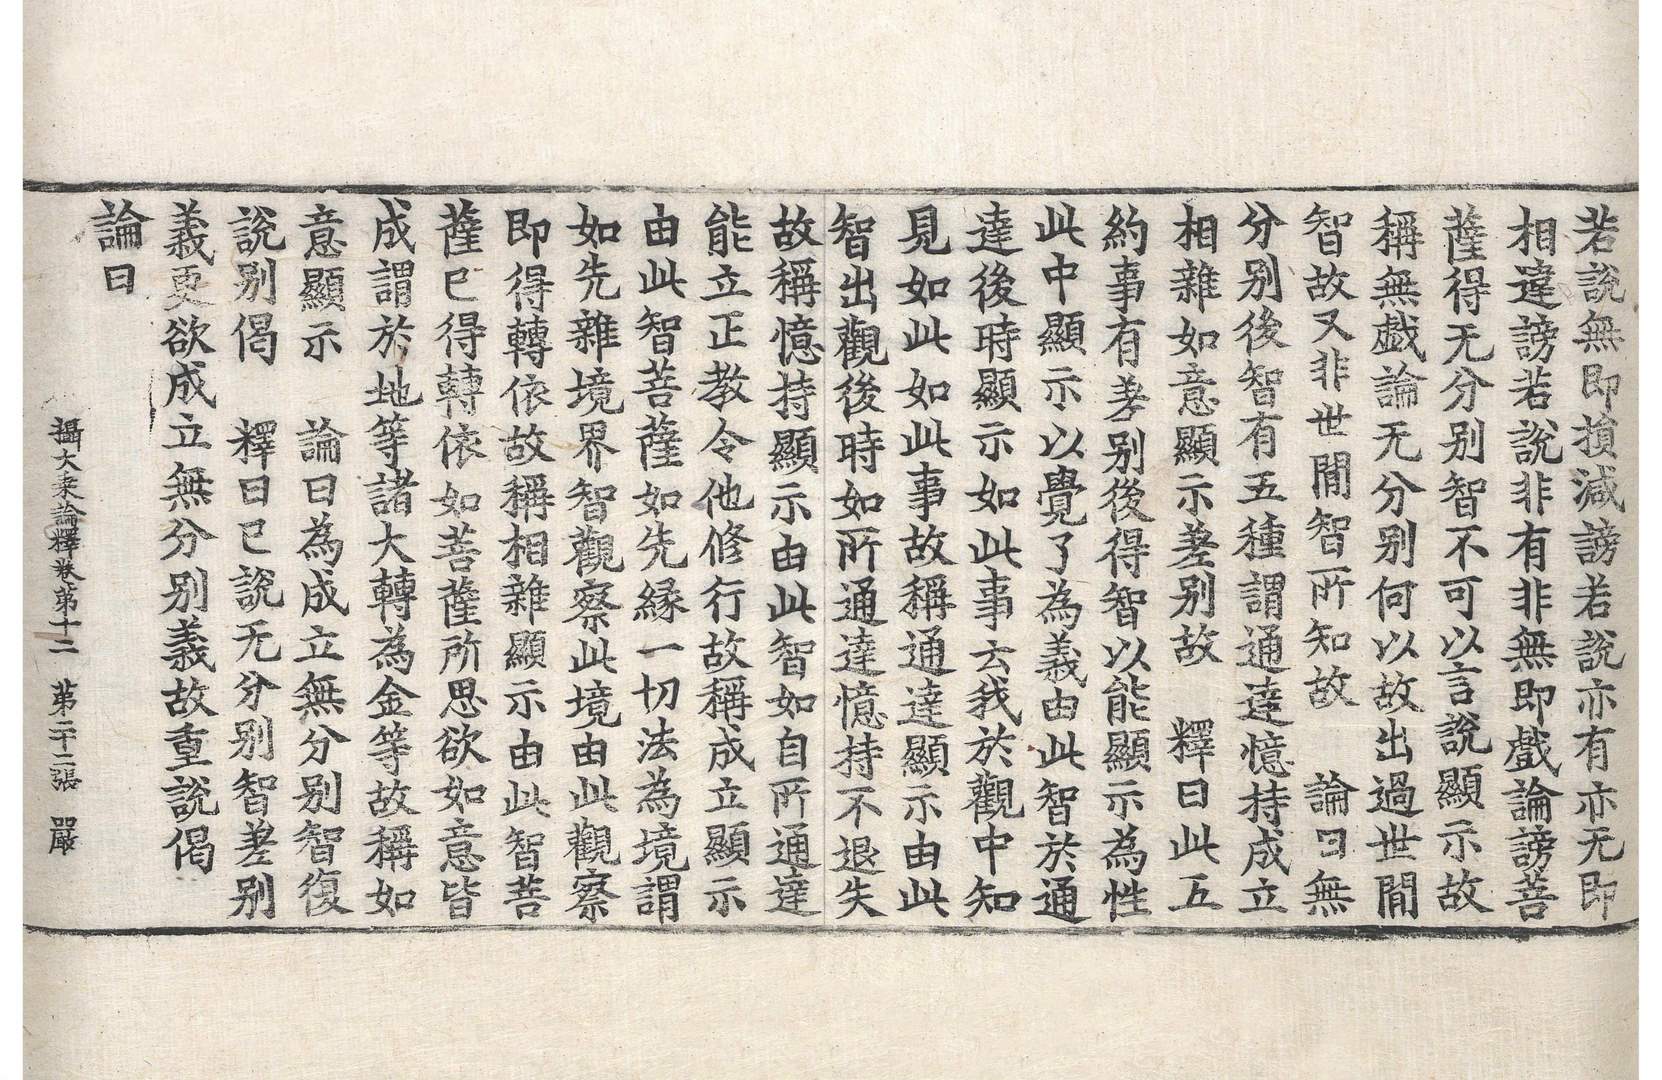 若說無即損減謗若說亦有亦无即
相違謗若說非有非無即戲論謗菩
薩得无分別智不可以言說顯示故
稱無戲論无分別何以故出過世間
智故又非世間智所知故　論曰無
分別後智有五種謂通達憶持成立
相雜如意顯示差別故　釋曰此五
約事有差別後得智以能顯示為性
此中顯示以覺了為義由此智於通
達後時顯示如此事云我於觀中知
見如此如此事故稱通達顯示由此
智出觀後時如所通達憶持不退失
故稱憶持顯示由此智如自所通達
能立正教令他修行故稱成立顯示
由此智菩薩如先緣一切法為境謂
如先雜境界智觀察此境由此觀察
即得轉依故稱相雜顯示由此智菩
薩已得轉依如菩薩所思欲如意皆
成謂於地等諸大轉為金等故稱如
意顯示　論曰為成立無分別智復
說別偈　釋曰已說无分別智差別
義更欲成立無分別義故重說偈
論曰
攝大乘論釋卷第十二　第二十二張　嚴